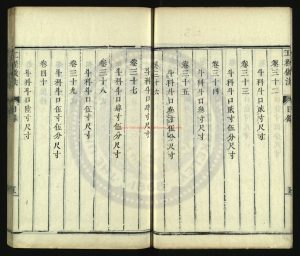 工程做法
目錄
卷三十二
斗科斗口貳寸尺寸
卷三十三
斗科斗口貳寸伍分尺寸
卷三十四
斗科斗口叁寸尺寸
卷三十五
斗科斗口叁寸伍分尺寸
卷三十六
斗科斗口肆寸尺寸
卷三十七
斗科斗口肆寸伍分尺寸
卷三十八
斗科斗口伍寸尺寸
卷三十九
斗科斗口伍寸伍分尺寸
卷四十
斗科斗口陸寸尺寸